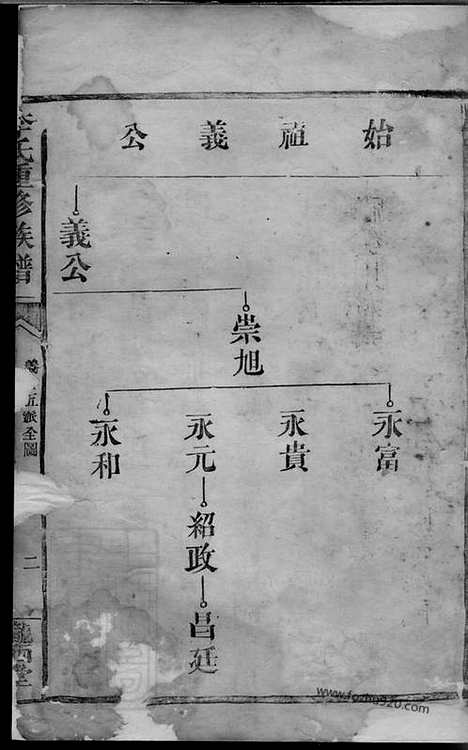 始祖義公
義公
崇旭
永富
永貴
永元
紹政
昌廷
永和
李氏重修族譜
五派全圖
二
龍門堂
www.fozhu920.com